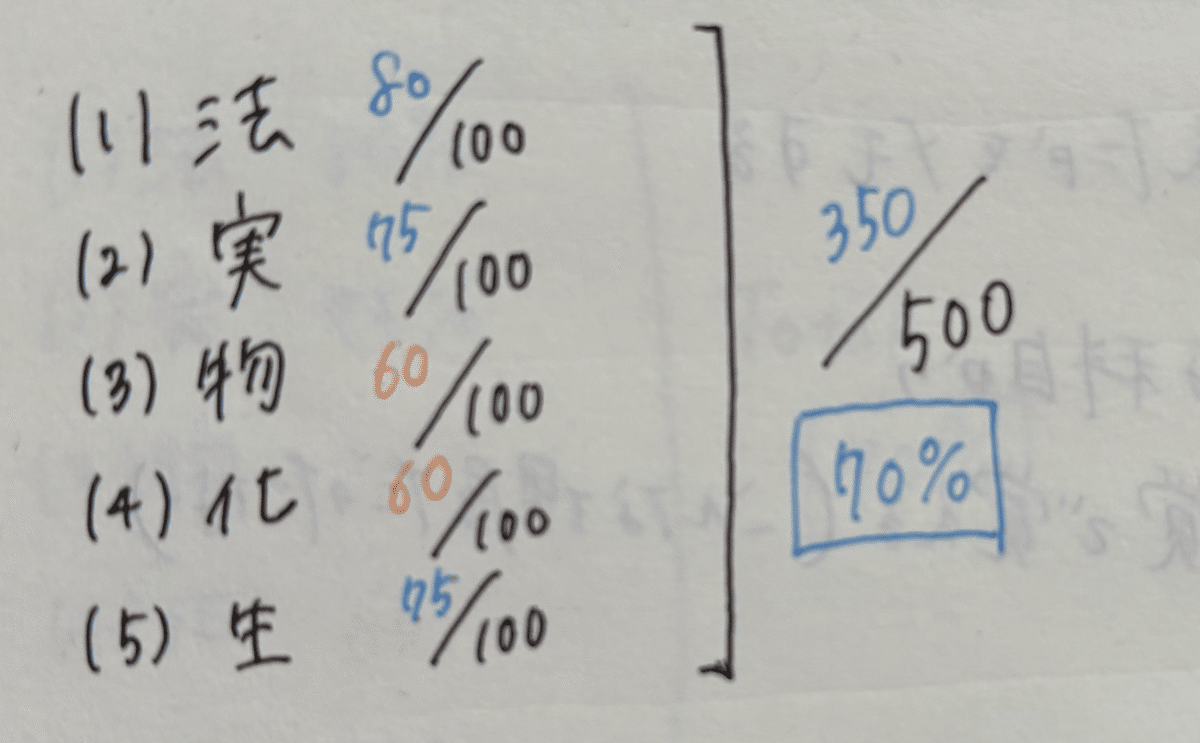 (1) 法 80/100
(2) 実 75/100
(3) 物 60/100
(4) 化 60/100
(5) 生 75/100
350/500
70%